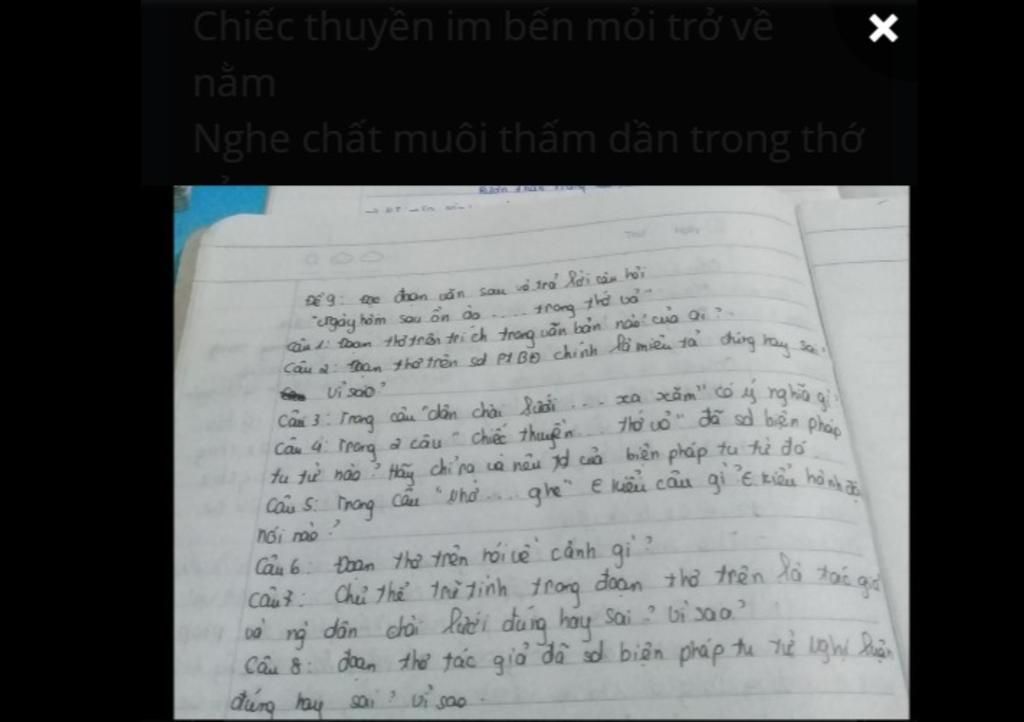 Chiếc thuyền im bến mỏi trở về
nằm
Nghe chất muôi thấm dần trong thớ
Đề 9: đọc đoạn văn sau và trả lời câu hỏi
"Ngày hôm sau ồn ào .... trong thớ vỏ"
Câu 1: Đoạn thơ trên trích trong văn bản nào? của ai?
Câu 2: Đoạn thơ trên sd PTBĐ chính là miêu tả đúng hay sai.
Vì sao?
Câu 3: Trong câu "dân chài lưới ... xa xăm" có ý nghĩa gì
Câu 4: Trong 2 câu "chiếc thuyền ... thớ vỏ" đã sd biện pháp
tu từ nào? Hãy chỉ ra và nêu td của biện pháp tu từ đó
Câu 5: Trong câu "Nhờ .... ghe" ∈ kiểu câu gì? ∈ kiểu hành độ
nói nào?
Câu 6: Đoạn thơ trên nói về cảnh gì?
Câu 7: Chủ thể trữ tình trong đoạn thơ trên là tác giả
và ng dân chài lưới đúng hay sai? Vì sao?
Câu 8: đoạn thơ tác giả đã sd biện pháp tu từ nghị luận
đúng hay sai? Vì sao.